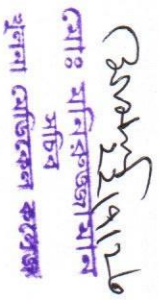 মোঃ মনিরুজ্জামান
সচিব
খুলনা মেডিকেল কলেজ